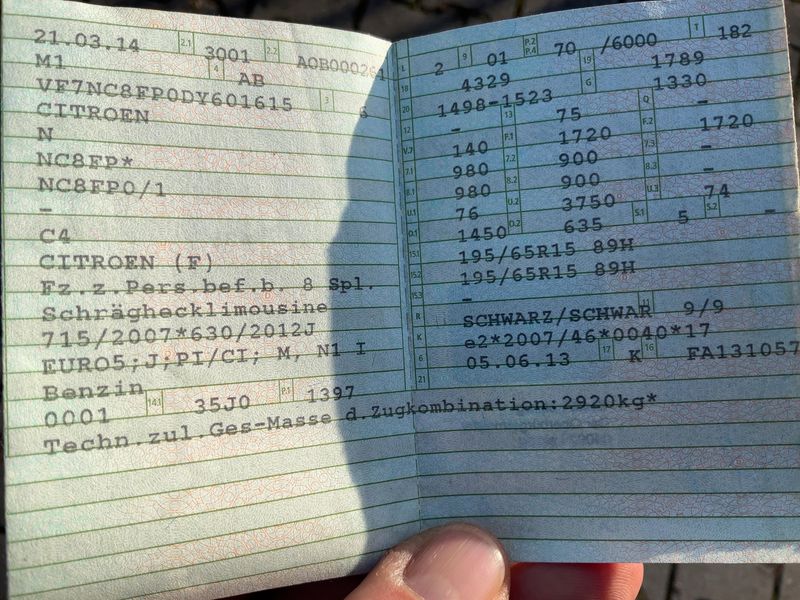 21.03.14 2.1 3001 2.2 AOB000261
M1 4 AB
VF7NC8FP0DY601615 3 6
CITROEN
N
NC8FP*
NC8FP0/1
-
C4
CITROEN (F)
Fz.z.Pers.bef.b. 8 Spl.
Schräghecklimousine
715/2007*630/2012J
EURO5;J;PI/CI; M, N1 I
Benzin
0001 14.1 35J0 P.1 1397
Techn.zul.Ges-Masse d.Zugkombination:2920kg*
L 2 9 01 P.2 P.4 70 /6000 T 182
18 4329 19 1789
20 1498-1523 G 1330
12 - 13 75 Q -
V.7 140 F.1 1720 F.2 1720
7.1 980 7.2 900 7.3 -
8.1 980 8.2 900 8.3 -
U.1 76 U.2 3750 U.3 74
O.1 1450 O.2 635 S.1 5 S.2 -
15.1 195/65R15 89H
15.2 195/65R15 89H
15.3 -
R SCHWARZ/SCHWAR 11 9/9
K e2*2007/46*0040*17
6 05.06.13 17 K 16 FA131057
21